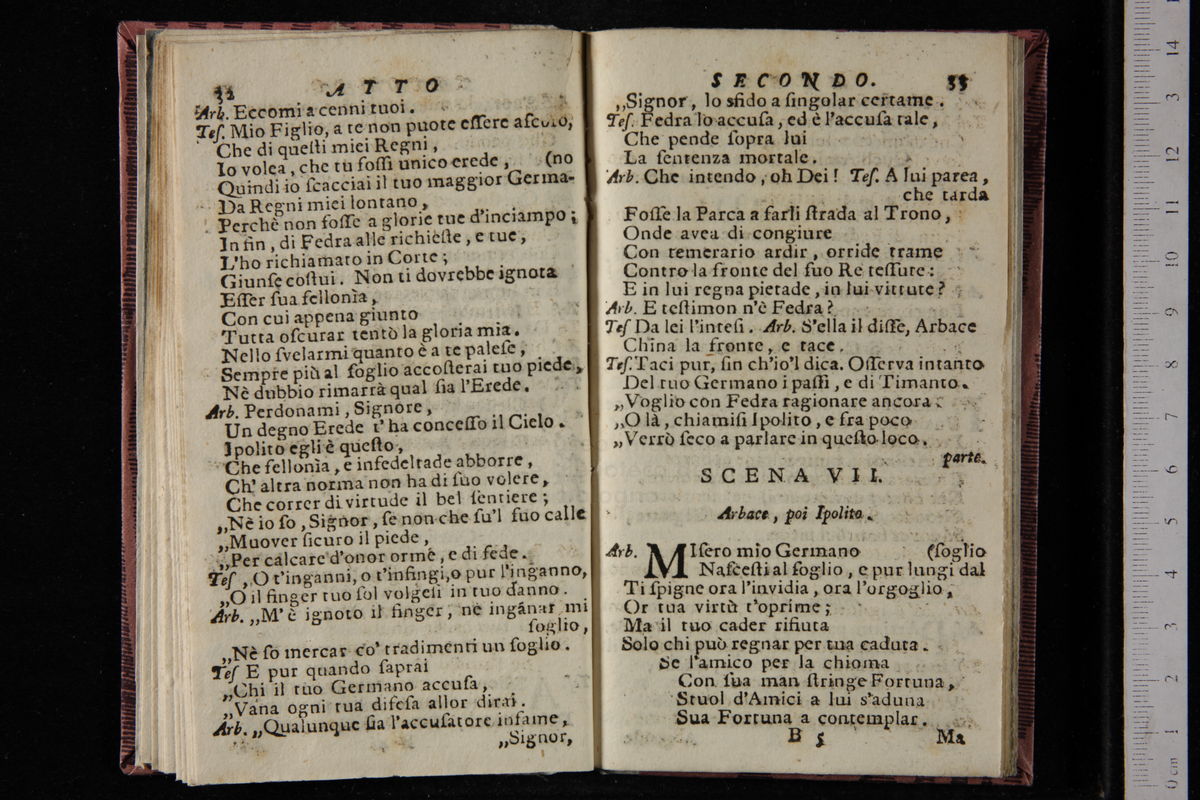 32 ATTO
Arb. Eccomi a cenni tuoi.
Tes. Mio Figlio, a te non puote essere ascoso,
Che di questi miei Regni,
Io volea, che tu fossi unico erede, (no
Quindi io scacciai il tuo maggior Germa-
Da Regni miei lontano,
Perchè non fosse a glorie tue d'inciampo;
In fin, di Fedra alle richieste, e tue,
L'ho richiamato in Corte;
Giunse costui. Non ti dovrebbe ignota
Esser sua fellonìa,
Con cui appena giunto
Tutta oscurar tentò la gloria mia.
Nello svelarmi quanto è a te palese,
Sempre più al soglio accosterai tuo piede,
Nè dubbio rimarrà qual sia l'Erede.
Arb. Perdonami, Signore,
Un degno Erede t'ha concesso il Cielo.
Ipolito egli è questo,
Che fellonìa, e infedeltade abborre,
Ch'altra norma non ha di suo volere,
Che correr di virtude il bel sentiere;
„Nè io so, Signor, se non che su'l suo calle
„Muover sicuro il piede,
„Per calcare d'onor orme, e di fede.
Tes „O t'inganni, o t'infingi, o pur l'inganno,
„O il finger tuo sol volgesi in tuo danno.
Arb. „M'è ignoto il finger, nè ingãnar mi
soglio,
„Nè so mercar co' tradimenti un soglio.
Tes E pur quando saprai
„Chi il tuo Germano accusa,
„Vana ogni tua difesa allor dirai.
Arb. „Qualunque sia l'accusatore infame,
„Signor,
SECONDO. 33
„Signor, lo sfido a singolar certame.
Tes. Fedra lo accusa, ed è l'accusa tale,
Che pende sopra lui
La sentenza mortale.
Arb. Che intendo, oh Dei! Tes. A lui parea,
che tarda
Fosse la Parca a farli strada al Trono,
Onde avea di congiure
Con temerario ardir, orride trame
Contro la fronte del suo Re tessute:
E in lui regna pietade, in lui virtute?
Arb. E testimon n'è Fedra?
Tes Da lei l'intesi. Arb. S'ella il disse, Arbace
China la fronte, e tace.
Tes. Taci pur, sin ch'io'l dica. Osserva intanto
Del tuo Germano i passi, e di Timanto.
„Voglio con Fedra ragionare ancora.
„O là, chiamisi Ipolito, e fra poco
„Verrò seco a parlare in questo loco.
parte.
SCENA VII.
Arbace, poi Ipolito.
Arb. MIsero mio Germano (soglio
Nascesti al soglio, e pur lungi dal
Ti spigne ora l'invidia, ora l'orgoglio,
Or tua virtù t'oprime;
Ma il tuo cader rifiuta
Solo chi può regnar per tua caduta.
Se l'amico per la chioma
Con sua man stringe Fortuna,
Stuol d'Amici a lui s'aduna
Sua Fortuna a contemplar.
B 5 Ma
0 cm 1 2 3 4 5 6 7 8 9 10 11 12 3 14